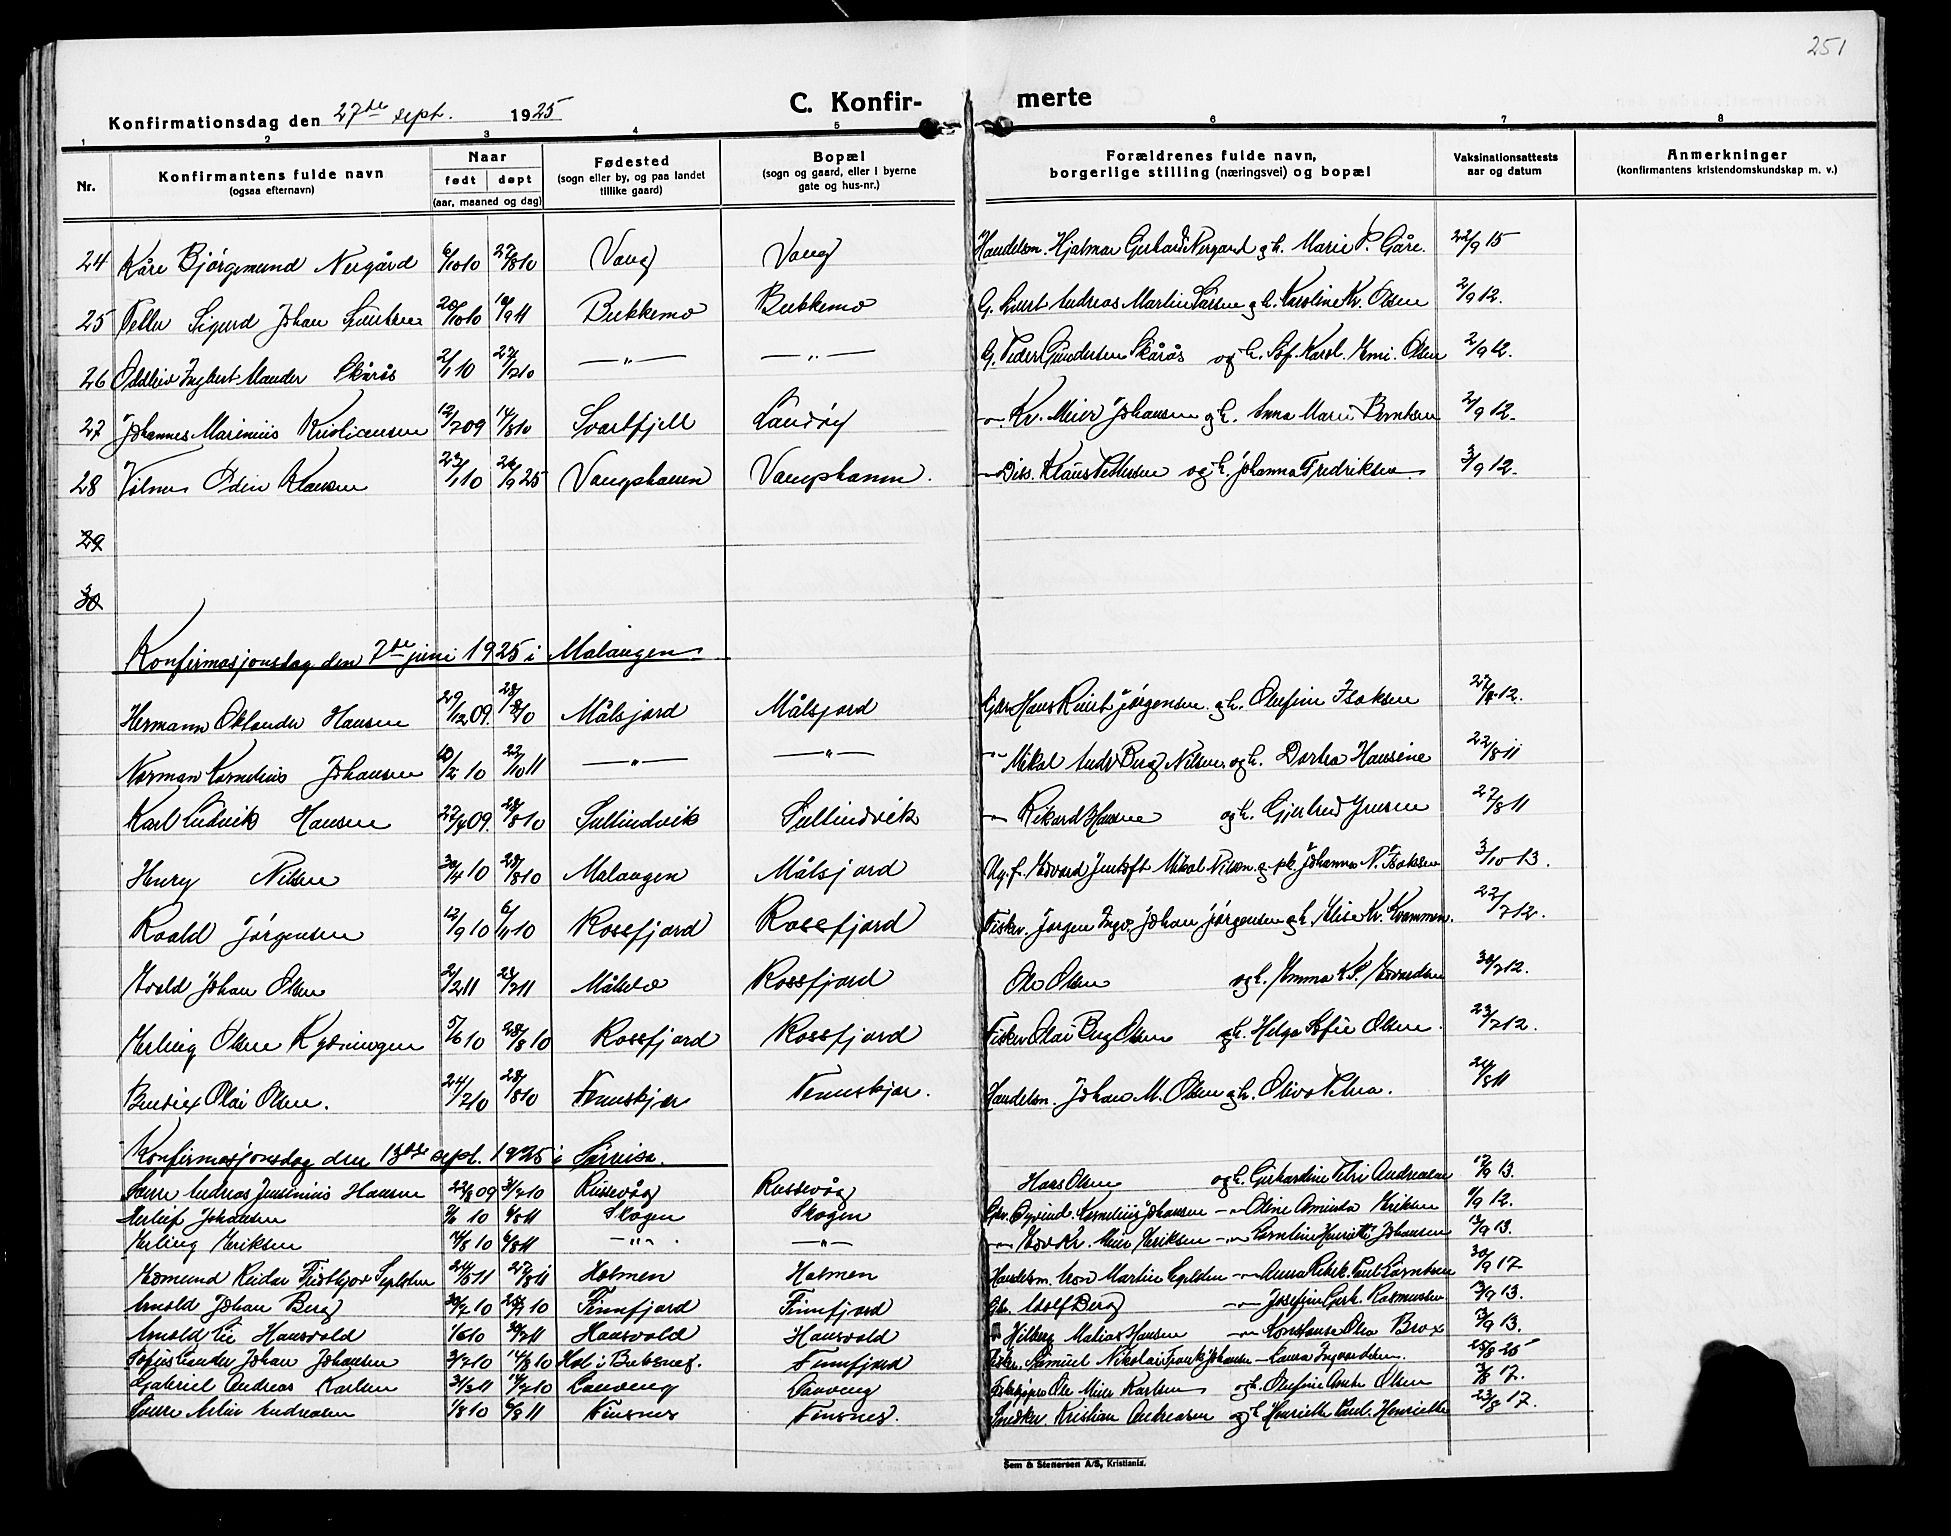 251
Konfirmationsdag den 27de sept. 1925
C. Konfirmerte
1 2 3 4 5 6 7 8
Nr. Konfirmantens fulde navn (ogsaa efternavn) Naar født døpt (aar, maaned og dag) Fødested (sogn eller by, og paa landet tillike gaard) Bopæl (sogn og gaard, eller i byerne gate og hus-nr.) Forældrenes fulde navn, borgerlige stilling (næringsvei) og bopæl Vaksinationsattests aar og datum Anmerkninger (konfirmantens kristendomskundskap m. v.)
24 Kåre Bjørgmund Nergård 6/10 10 27/8 10 Vang Vang Handelsm. Hjalmar Gerhard Nergård og h. Marie P. Gåre. 22/9 15
25 Peller Sigurd Johan 20/10 10 /9 11 Bukkemo Bukkemo G. Andreas Martin Larsen og h. Karoline Kr. Olsen 2/9 12.
26 Oddleiv Ingbert Mander Skårås 2/1 10 27/7 10 —"— —"— G. Peder Gundersen Skårås og h. Sof. Karol. Emi. Olsen 2/9 12.
27 Johannes Marinius Kristiansen 12/7 09 14/8 10 Svartfjell Sandøy —"— Kr. Meier Johansen og h. Anna Marie Berntsen 2/9 12.
28 Vilmer Odin Klausen 23/1 10 26/9 25 Vangshamn Vangshamn. —"— Diss. Klaus Pettersen og h. Johanna Fredriksen 3/9 12.
29
30
Konfirmasjonsdag den 7de juni 1925 i Malangen
Hermann Oktander Hansen 29/12 09. 28/8 10 Målsjord Målsjord Gbr. Hans Kurt Jørgensen og h. Olufine Isaksen 27/8 12.
Norman Kornelius Johansen 10/2 10 22/10 11 —"— —"— —"— Mikal Andr Berg Nilsen og h. Dorthea Hansine 22/8 11
Karl Ludvik Hansen 27/4 09. 28/8 10 Sultindvik Sultindvik —"— Rikard Hansen og h. Gjertrud Jensen 27/8 11
Henry Nilsen 30/4 10 28/8 10 Malangen Målsjord Ug. f. Edvard Jentoft Mikal Nilsen og pk. Johanna N. Isaksen 3/10 13.
Roald Jørgensen 12/9 10 6/11 10 Rossfjord Rossfjord Fisker. Jørgen Ingv. Johan Jørgensen og h. Elise Kr. Kvammen. 22/7 12.
Evald Johan Olsen 2/2 11 23/7 11 Målselv Rossfjord Ole Olsen og h. Emma K. P. Edvardsen 30/7 12.
Erling Olsen Kydningen 5/6 10 28/8 10 Rossfjord Rossfjord Fisker Olai Berg Olsen og h. Helga Sofie Olsen. 23/7 12.
Bendix Olai Olsen. 24/7 10 28/8 10 Tennskjer Tennskjer. Handelsm. Johan M. Olsen og h. Oliva Petra. 21/8 11
Konfirmasjonsdag den 13de sept. 1925 i Sørreisa.
Sverre Andreas Jensinius Hansen 22/8 09 31/7 10 Russevåg Russevåg Hans Olsen og h. Gerhardine Petri Andreassen 17/9 13.
Herleif Johansen 3/6 10 6/8 11 Skogen Skogen Gbr. Øyvind Kornelius Johansen —"— Oline Aminda Eriksen 6/9 12.
Erling Eriksen 14/8 10 6/8 11 —"— —"— —"— Edv. Kr. Meier Eriksen —"— Karoline Henriette Johansen 13/9 13.
Edmund Reidar Fridthjov 24/5 11 27/8 11 Holmen Holmen Handelsm. Martin —"— Anna Rebek. Paul. Berntsen 30/9 17
Arnold Johan Berg 30/7 10 28/7 10 Finnfjord Finnfjord Gbr. Adolf Berg —"— Josefine Gerh. Rasmussen 13/9 13.
Arnold Lie Hansvold 1/6 10 30/7 11 Hansvold Hansvold Hilberg Matias Hansen —"— Konstanse Olea Brox 13/9 13.
Johan Johansen 3/7 10 14/8 10 Hol i Botsnes. Finnfjord Fisker. Samuel Nikolai Frantz Johansen —"— Laura Ingvardsen. 25/8 25
Gabriel Andreas Karlsen 31/3 11 14/7 10 Lanveng Lanveng Ole Meier Karlsen og h. Olufine Olsen /8 17.
Sverre Andreasen 1/8 10 6/8 11 Finsnes Finsnes. Snedker Kristian Andreasen og h. Henriette Paul. Henriette 23/8 17.
Sem & Stenersen A/S, Kristiania.